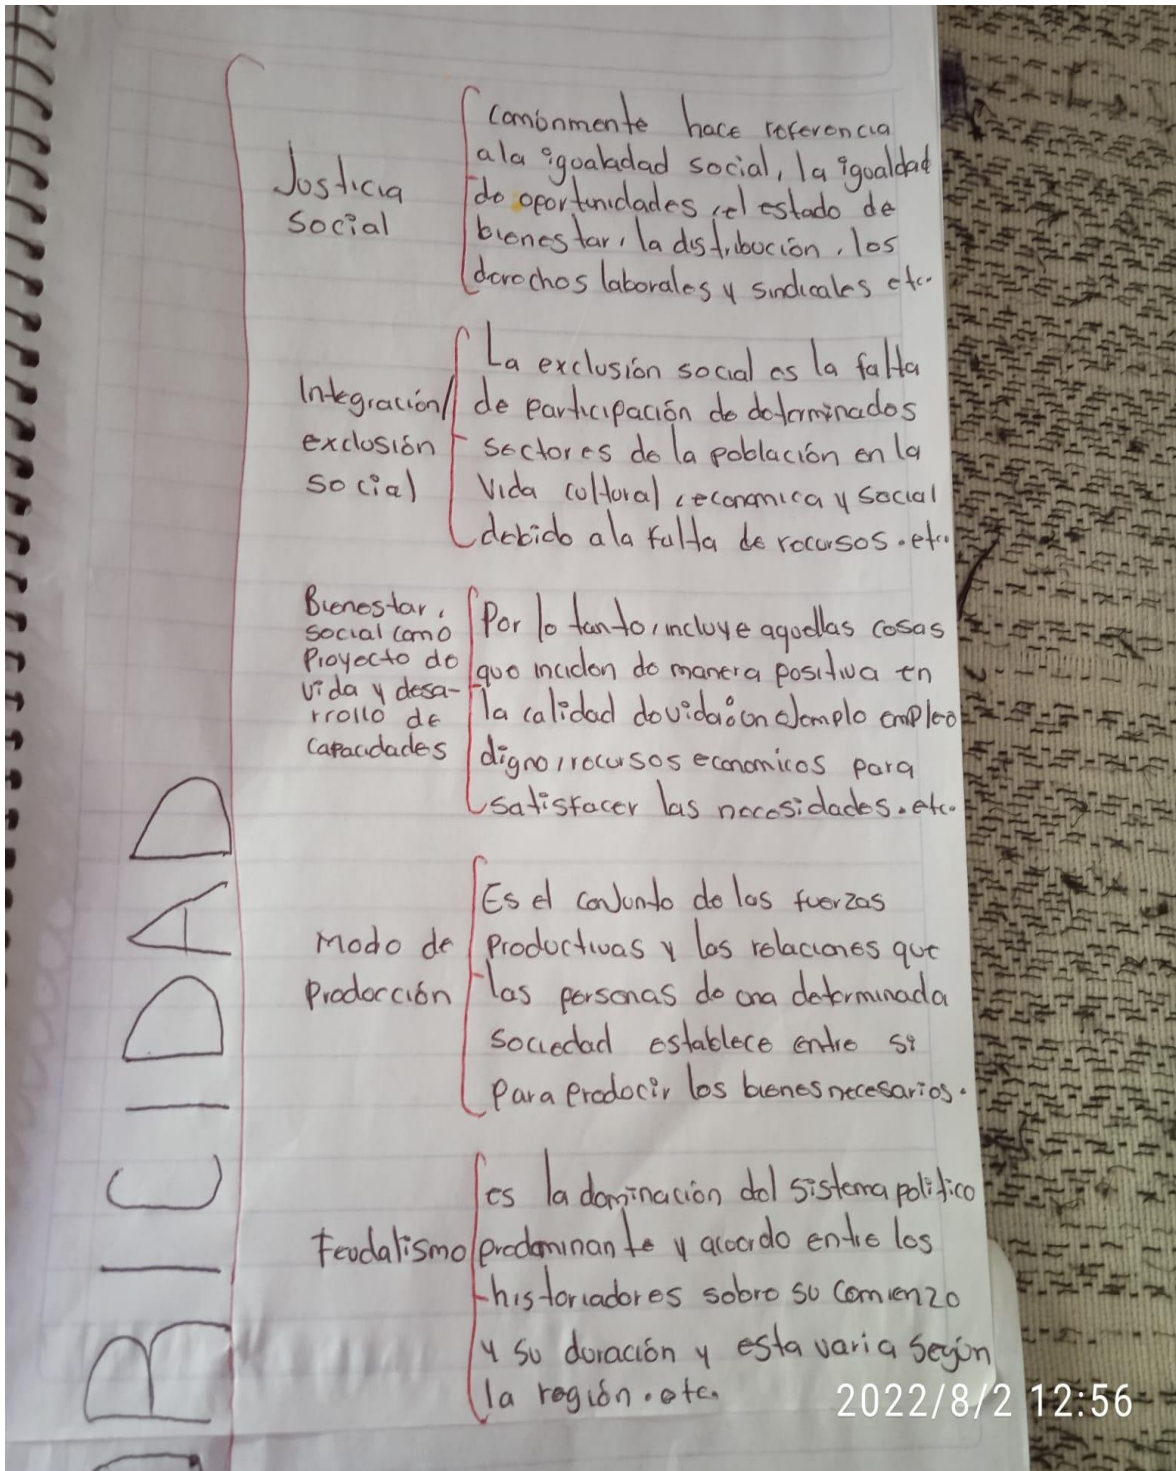 Justicia
social
comónmente hace referencia
ala igualadad social, la igualdad
de oportunidades, el estado de
bienestar, la distribución, los
derechos laborales y sindicales etc.
Integración/
exclusión
social
La exclusión social es la falta
de participación de determinados
sectores de la población en la
vida cultural, economica y social
debido ala falta de recursos. etc.
Bienestar,
social como
Proyecto de
vida y desa-
rrollo de
capacidades
Por lo tanto, incluye aquellas cosas
que inciden de manera positiva en
la calidad de vida: un ejemplo empleo
digno, recursos economicos para
satisfacer las necesidades. etc.
Modo de
Producción
Es el conjunto de las fuerzas
productivas y las relaciones que
las personas de una determinada
sociedad establece entre si
para producir los bienes necesarios.
Feudalismo
es la dominación del sistema politico
predominante y acoordo entre los
historiadores sobre su comienzo
y su duración y esta varia según
la región. etc.
RICIDAD
2022/8/2 12:56